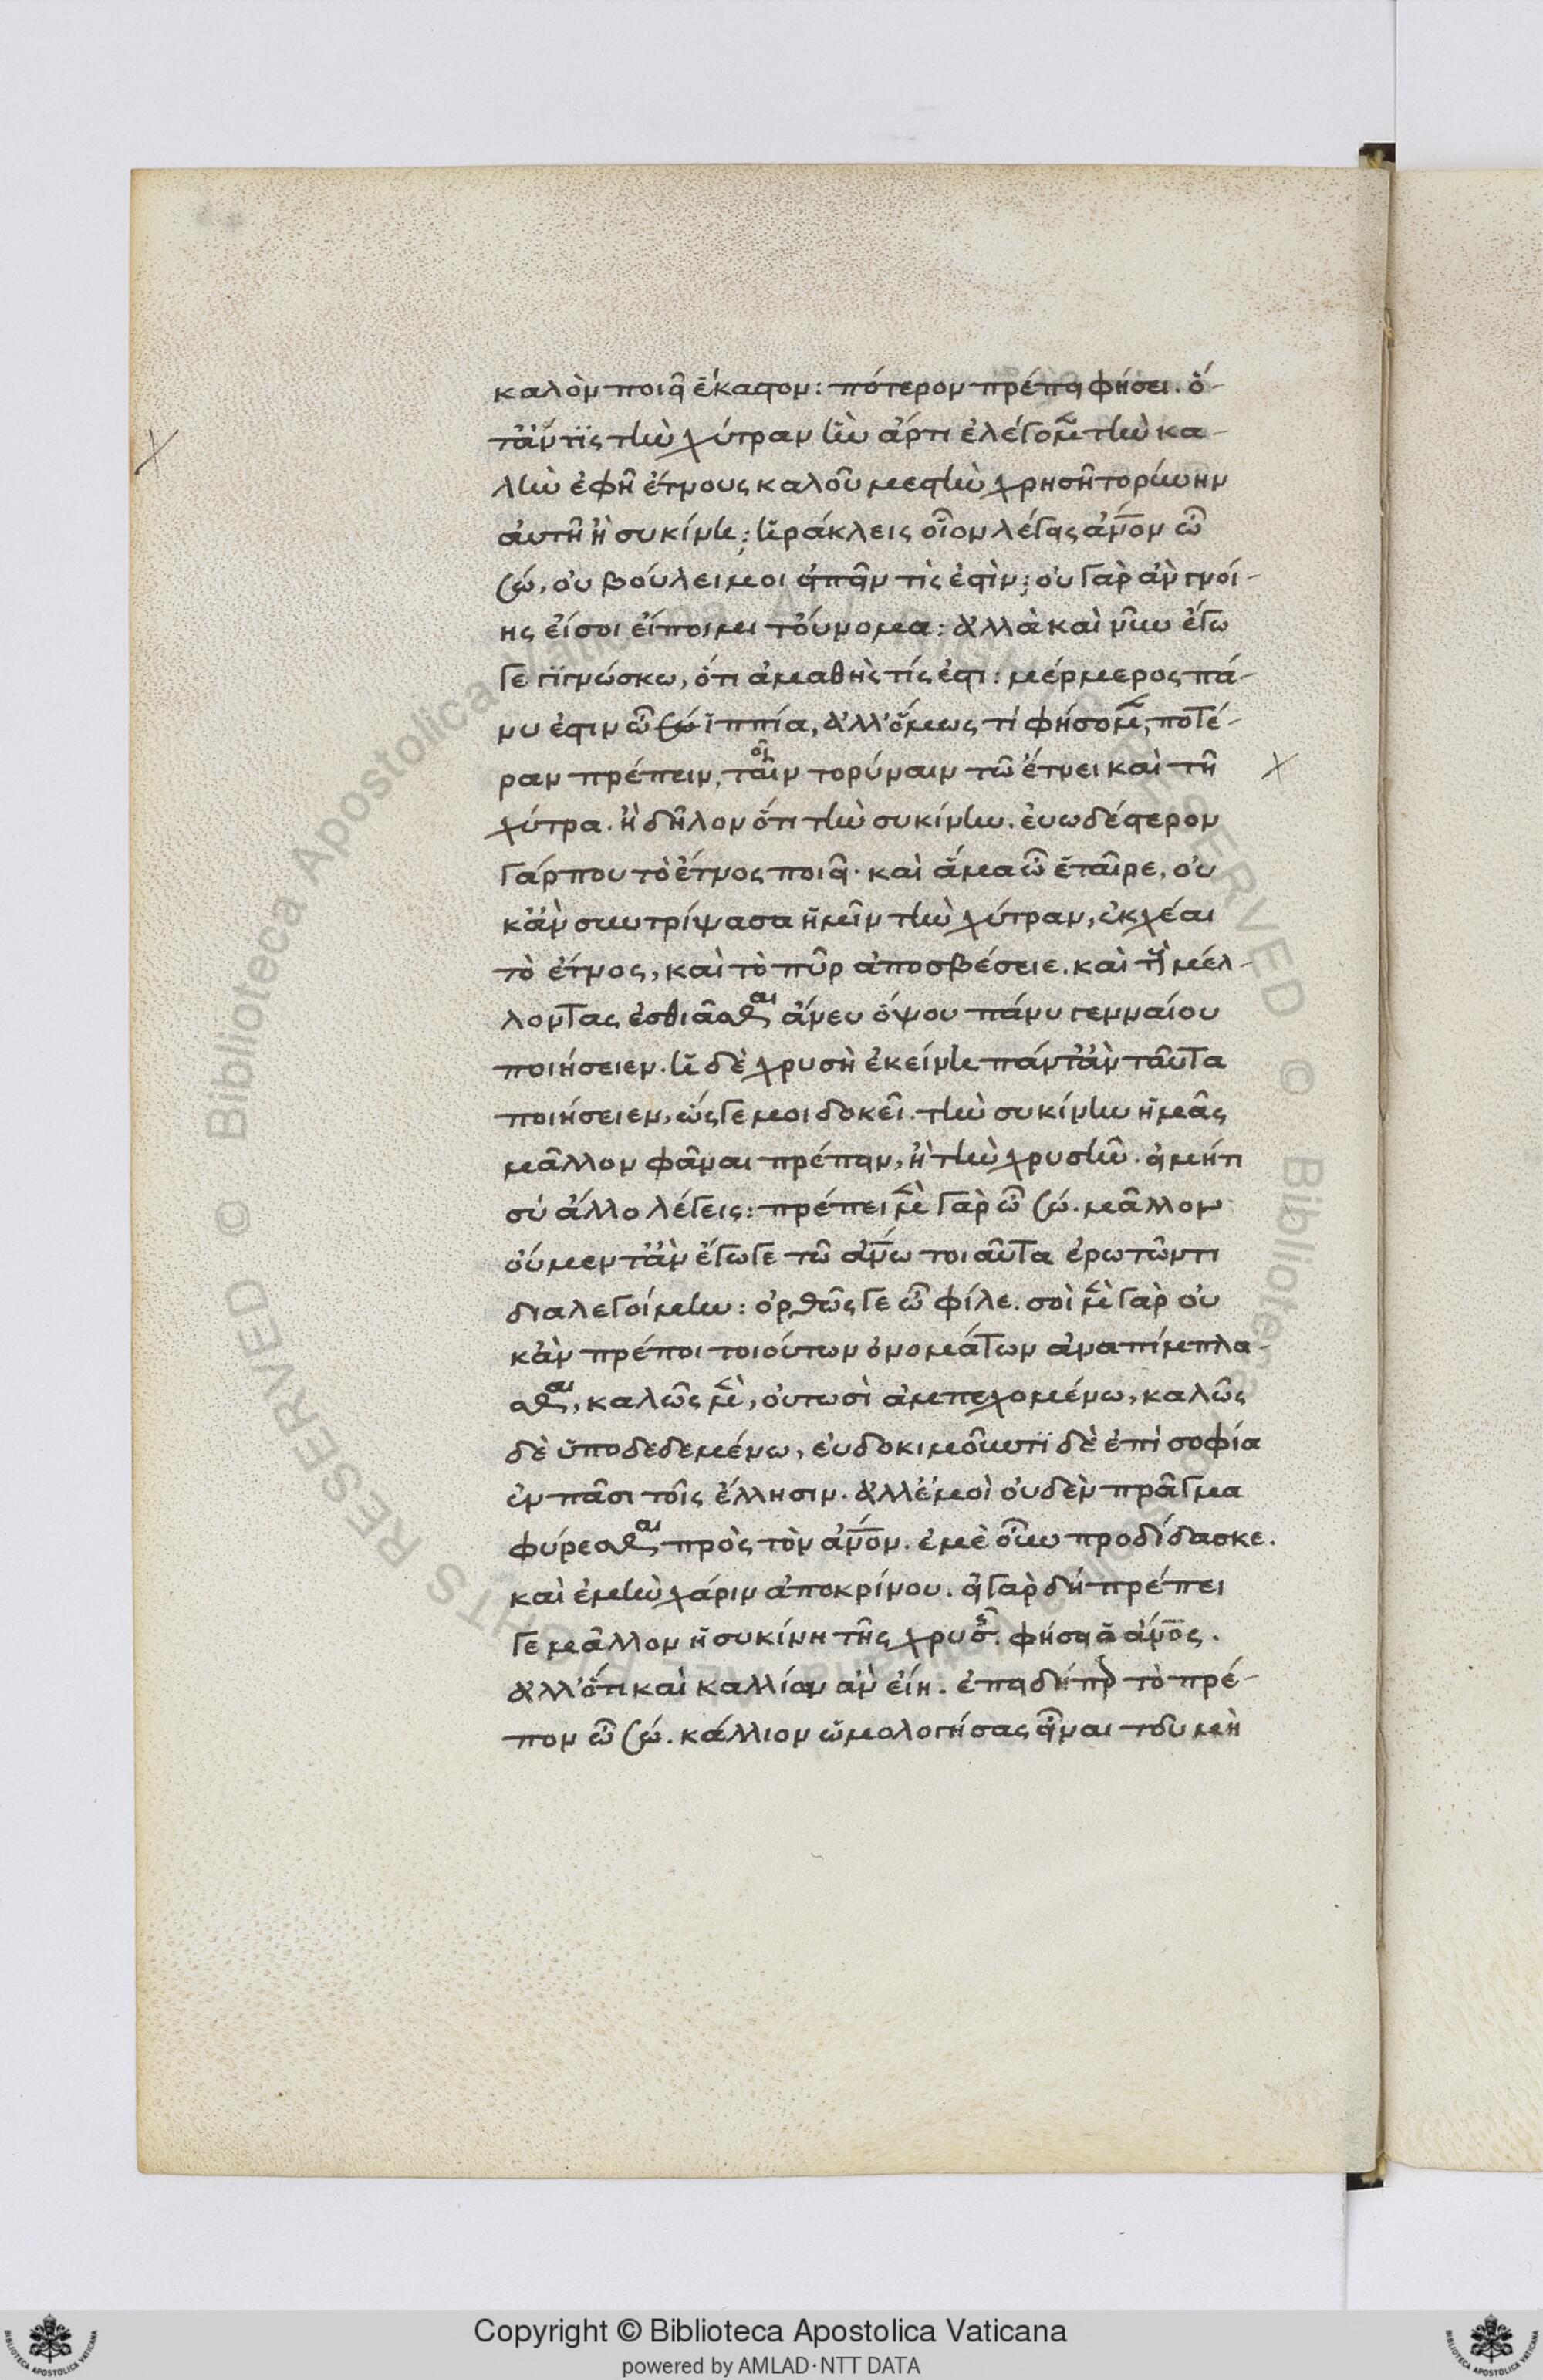 καλὸν ποιεῖ ἕκαστον: πότερον πρέπει φήσει. ὅ-
τἄν τὶς τὴν χύτραν ἣν ἄρτι ἐλέγομεν τὴν κα-
λὴν ἑψῇ ἔτνους καλοῦ μεστὴν χρησῆ τορύνην
αὐτῆ ἢ συκίνη; ἡράκλεις οἷον λέγεις ἄνον ὦ
σώ, οὐ βούλει μοι εἰπεῖν τίς ἐστὶν; οὐ γὰρ ἂν γνοί-
ης εἴ σοι εἴποιμι τοὔνομα: ἀλλὰ καὶ νῦν ἔγω
γε γιγνώσκω, ὅτι ἀμαθής τίς ἐστι: μέρμερος πά-
νυ ἐστιν ὦ σώ ἱππία, ἀλλ' ὅμως τί φήσομεν; ποτέ-
ραν πρέπειν, ταῖν τορύναιν τῶ ἔτνει καὶ τῆ
οῖ
χύτρα. ἢ δῆλον ὅτι τὴν συκίνην. εὐωδέστερον
γάρ που τὸ ἔτνος ποιεῖ. καὶ ἅμα ὦ ἑταῖρε, οὐ
κἂν συντρίψασα ἡμῖν τὴν χύτραν, ἐκχέαι
τὸ ἔτνος, καὶ τὸ πῦρ ἀποσβέσειε. καὶ τοὺς μέλ-
λοντας ἑστιᾶσθαι ἄνευ ὄψου πάνυ γενναίου
ποιήσειεν. ἡ δὲ χρυσὴ ἐκείνη πάντ' ἂν ταῦτα
ποιήσειεν, ὥς γε μοι δοκεῖ. τὴν συκίνην ἡμᾶς
μᾶλλον φᾶναι πρέπειν, ἢ τὴν χρυσῆν. εἰ μή τι
σὺ ἄλλο λέγεις: πρέπει μὲν γὰρ ὦ σώ. μᾶλλον
οὐ μεντἂν ἔγωγε τῶ ἄνω τοιαῦτα ἐρωτῶντι
διαλεγοίμην: ὀρθῶς γε ὦ φίλε. σοὶ μὲν γὰρ οὐ
κἂν πρέποι τοιούτων ὀνομάτων ἀναπίμπλα-
σθαι, καλῶς μὲν, οὑτωσὶ ἀμπεχομένω, καλῶς
δὲ ὑποδεδεμένω, εὐδοκιμοῦντι δὲ ἐπὶ σοφία
ἐν πᾶσι τοῖς ἕλλησιν. ἀλλ' ἐμοὶ οὐδὲν πρᾶγμα
φύρεσθαι πρὸς τὸν ἄνον. ἐμὲ οὖν προδίδασκε.
καὶ ἐμὴν χάριν ἀποκρίνου. εἰ γὰρ δὴ πρέπει
γε μᾶλλον ἡ συκίνη τῆς χρυσῆς. φήσει ὁ ἄνος.
ἀλλ' ὅτι καὶ καλλίων ἂν εἴη. ἐπειδήπερ τὸ πρέ-
πον ὦ σώ. κάλλιον ὡμολόγησας εἶναι τοῦ μὴ
Copyright © Biblioteca Apostolica Vaticana
powered by AMLAD·NTT DATA